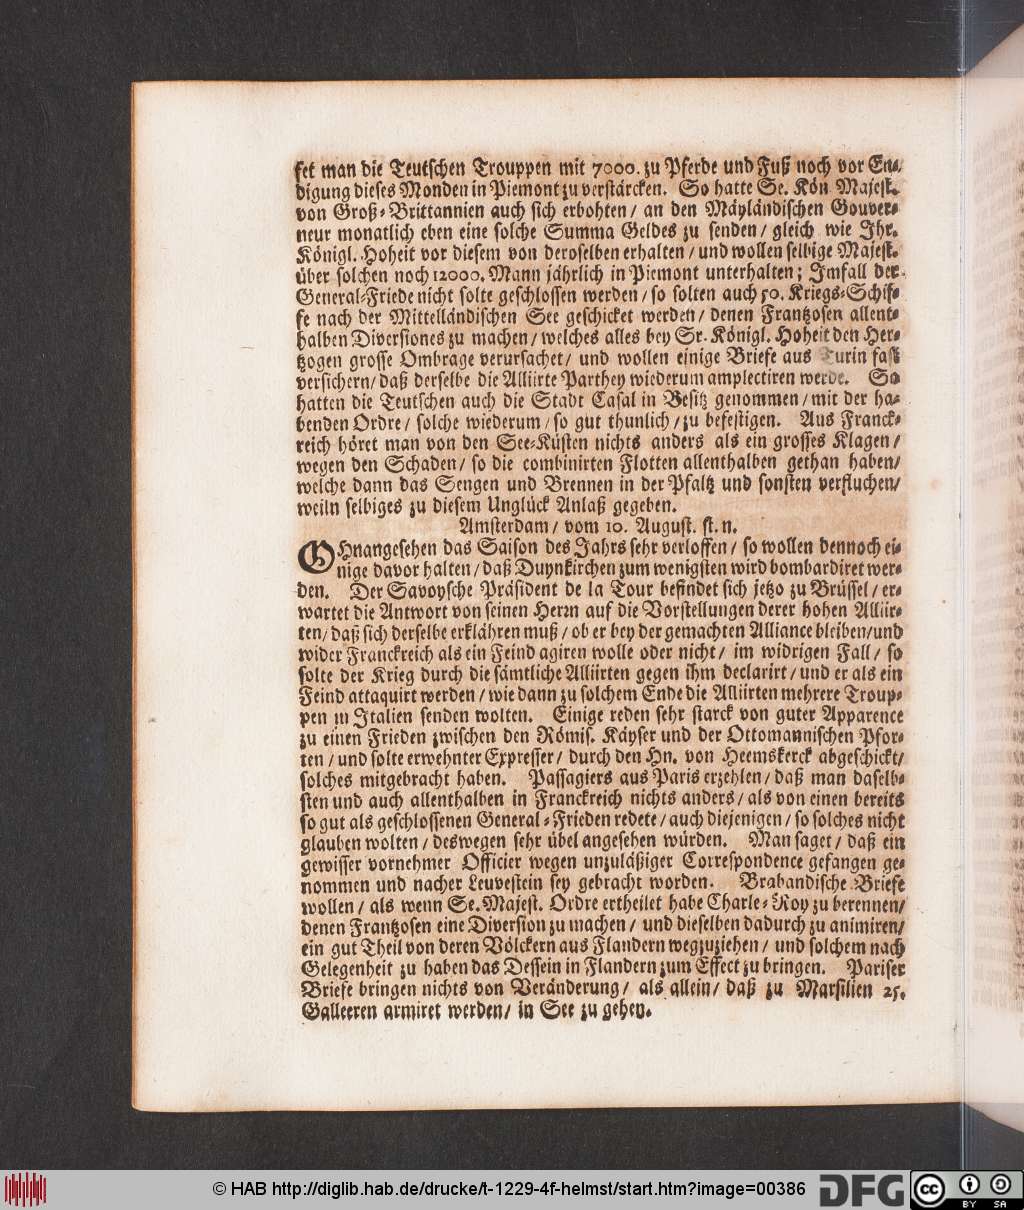 fet man die Teutschen Trouppen mit 7000. zu Pferde und Fuß noch vor En-
digung dieses Monden in Piemont zu verstärcken. So hatte Se. Kön Majest.
von Groß-Brittannien auch sich erbohten/ an den Mäyländischen Gouver-
neur monatlich eben eine solche Summa Geldes zu senden/ gleich wie Ihr.
Königl. Hoheit vor diesem von deroselben erhalten/ und wollen selbige Majest.
über solchen noch 12000. Mann jährlich in Piemont unterhalten; Imfall der
General-Friede nicht solte geschlossen werden/ so solten auch 50. Kriegs-Schif-
fe nach der Mittelländischen See geschicket werden/ denen Frantzosen allent-
halben Diversiones zu machen/ welches alles bey Sr. Königl. Hoheit den Her-
tzogen grosse Ombrage verursachet/ und wollen einige Briefe aus Turin fast
versichern/ daß derselbe die Alliirte Parthey wiederum amplectiren werde. So
hatten die Teutschen auch die Stadt Casal in Besitz genommen/ mit der ha-
benden Ordre/ solche wiederum/ so gut thunlich/ zu befestigen. Aus Franck-
reich höret man von den See-Küsten nichts anders als ein grosses Klagen/
wegen den Schaden/ so die combinirten Flotten allenthalben gethan haben/
welche dann das Sengen und Brennen in der Pfaltz und sonsten verfluchen/
weiln selbiges zu diesem Unglück Anlaß gegeben.
Amsterdam/ vom 10. August. st. n.
OHnangesehen das Saison des Jahrs sehr verloffen/ so wollen dennoch ei-
nige davor halten/ daß Duynkirchen zum wenigsten wird bombardiret wer-
den. Der Savoysche Präsident de la Tour befindet sich jetzo zu Brüssel/ er-
wartet die Antwort von seinen Herrn auf die Vorstellungen derer hohen Alliir-
ten/ daß sich derselbe erklähren muß/ ob er bey der gemachten Alliance bleiben/und
wider Franckreich als ein Feind agiren wolle oder nicht/ im widrigen Fall/ so
solte der Krieg durch die sämtliche Alliirten gegen ihm declarirt/ und er als ein
Feind attaquirt werden/ wie dann zu solchem Ende die Alliirten mehrere Troup-
pen in Italien senden wolten. Einige reden sehr starck von guter Apparence
zu einen Frieden zwischen den Römis. Käyser und der Ottomannischen Pfor-
ten/ und solte erwehnter Expresser/ durch den Hn. von Heemskerck abgeschickt/
solches mitgebracht haben. Passagiers aus Paris erzehlen/ daß man daselb-
sten und auch allenthalben in Franckreich nichts anders/ als von einen bereits
so gut als geschlossenen General-Frieden redete/ auch diejenigen/ so solches nicht
glauben wolten/ deswegen sehr übel angesehen würden. Man saget/ daß ein
gewisser vornehmer Officier wegen unzuläßiger Correspondence gefangen ge-
nommen und nacher Leuvestein sey gebracht worden. Brabandische Briefe
wollen/ als wenn Se. Majest. Ordre ertheilet habe Charle-Roy zu berennen/
denen Frantzosen eine Diversion zu machen/ und dieselben dadurch zu animiren/
ein gut Theil von deren Völckern aus Flandern wegzuziehen/ und solchem nach
Gelegenheit zu haben das Dessein in Flandern zum Effect zu bringen. Pariser
Briefe bringen nichts von Veränderung/ als allein/ daß zu Marsilien 25.
Galleeren armiret werden/ in See zu gehen.
© HAB http://diglib.hab.de/drucke/t-1229-4f-helmst/start.htm?image=00386
DFG
cc BY SA